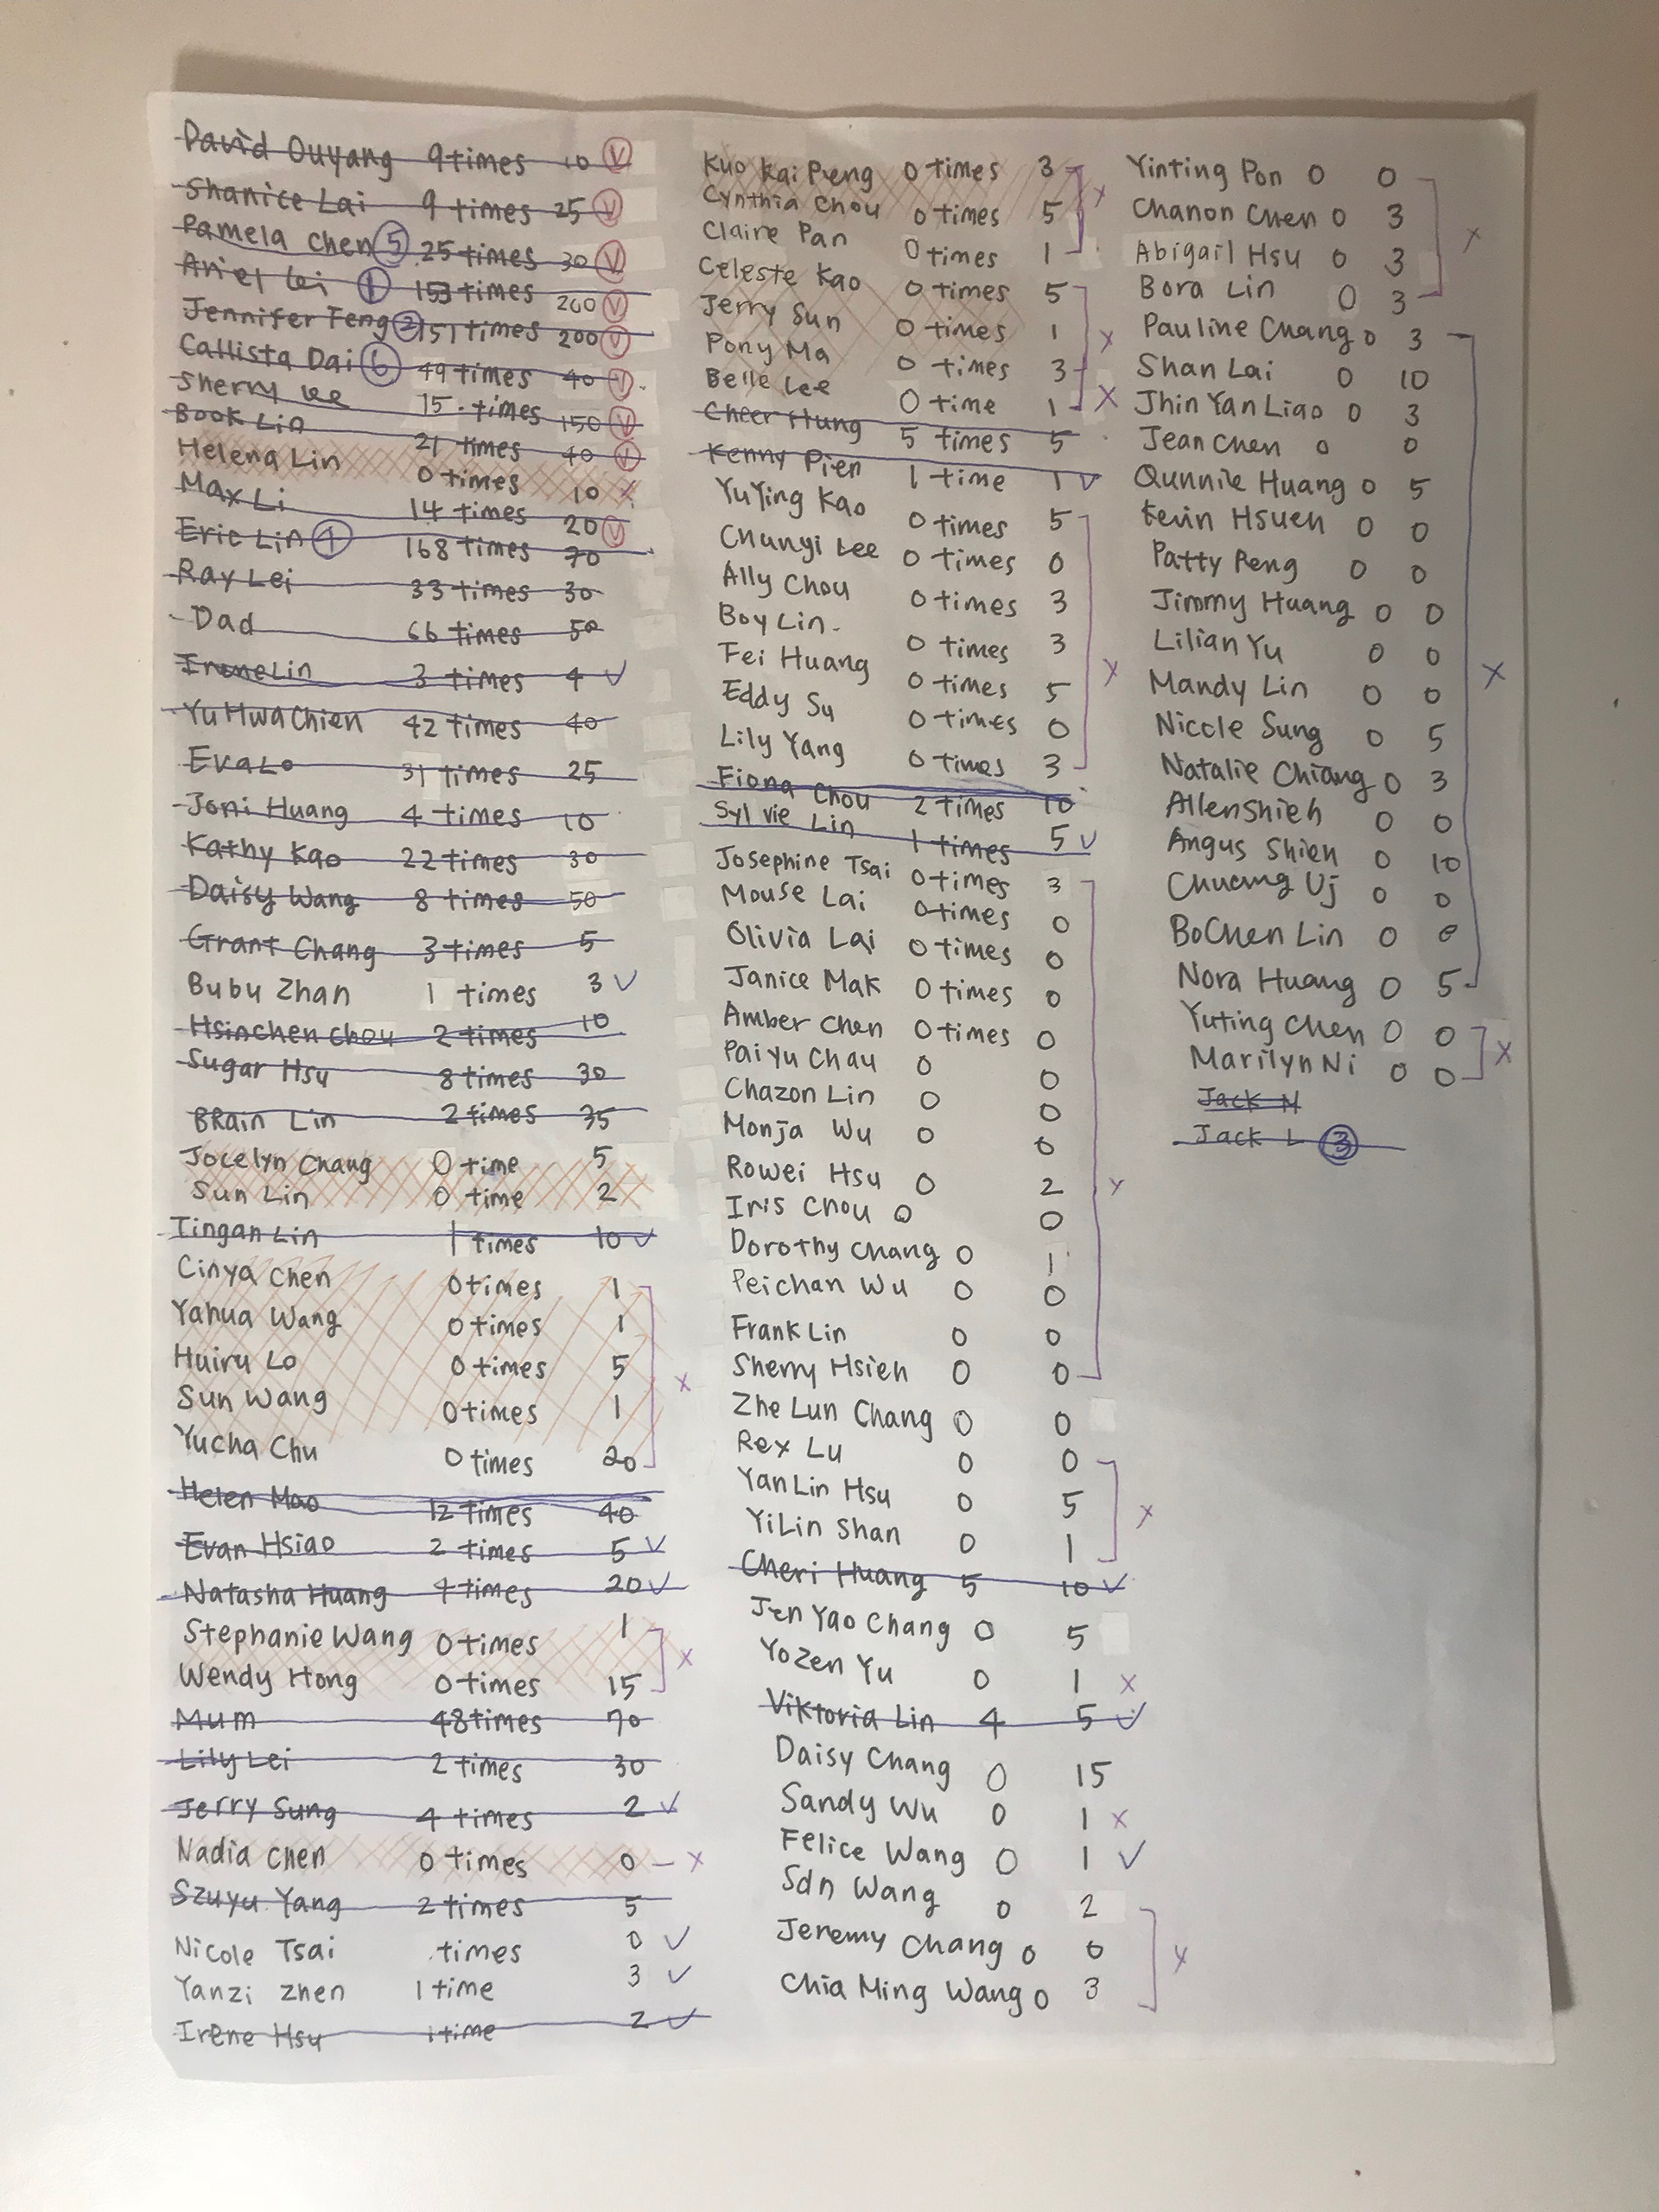 David Ouyang 9 times 10 V
Shanice Lai 9 times 25 V
Pamela Chen 5 25 times 30 V
Ariel Lei 1 153 times 200 V
Jennifer Feng 2 151 times 200 V
Callista Dai 6 49 times 40 V
Sherry Lee 15 times 150 V
Book Lin 21 times 40 V
Helena Lin 0 times 10 X
Max Li 14 times 20 V
Eric Lin 4 168 times 70
Ray Lei 33 times 30
Dad 66 times 50
Irene Lin 3 times 4 ✓
Yu Hwa Chien 42 times 40
Eva Lo 31 times 25
Joni Huang 4 times 10
Kathy Kao 22 times 30
Daisy Wang 8 times 50
Grant Chang 3 times 5
Bubu Zhan 1 times 3 ✓
Hsinchen Chou 2 times 10
Sugar Hsu 8 times 30
BRain Lin 2 times 35
Jocelyn Chang 0 time 5
Sun Lin 0 time 2
Tingan Lin 1 times 10 ✓
Cinya Chen 0 times 1
Yahua Wang 0 times 1
Huiru Lo 0 times 5
X
Sun Wang 0 times 1
Yucha Chu 0 times 20
Helen Mao 12 times 40
Evan Hsiao 2 times 5 ✓
Natasha Huang 4 times 20 ✓
Stephanie Wang 0 times 1
X
Wendy Hong 0 times 15
Mum 48 times 70
Lily Lei 2 times 30
Jerry Sung 4 times 2 ✓
Nadia Chen 0 times 0 - X
Szuyu Yang 2 times 5
Nicole Tsai times 0 ✓
Yanzi Zhen 1 time 3 ✓
Irene Hsu 1 time 2 ✓
Kuo Kai Peng 0 times 3
X
Cynthia Chou 0 times 5
Claire Pan 0 times 1
Celeste Kao 0 times 5
Jerry Sun 0 times 1
X
Pony Ma 0 times 3
Belle Lee 0 time 1 X
Cheer Hung 5 times 5
Kenny Pien 1 time 1 ✓
YuYing Kao 0 times 5
Chunyi Lee 0 times 0
Ally Chou 0 times 3
Boy Lin 0 times 3
X
Fei Huang 0 times 5
Eddy Su 0 times 0
Lily Yang 0 times 3
Fiona Chou 2 times 10
Sylvie Lin 1 times 5 ✓
Josephine Tsai 0 times 3
Mouse Lai 0 times 0
Olivia Lai 0 times 0
Janice Mak 0 times 0
Amber Chen 0 times 0
Paiyu Chau 0 0
Chazon Lin 0 0
Monja Wu 0 0
Rowei Hsu 0 2
X
Iris Chou 0 0
Dorothy Chang 0 1
Peichan Wu 0 0
Frank Lin 0 0
Sherry Hsieh 0 0
Zhe Lun Chang 0 0
Rex Lu 0 0
YanLin Hsu 0 5
X
YiLin Shan 0 1
Cheri Huang 5 10 ✓
Jen Yao Chang 0 5
Yozen Yu 0 1 X
Viktoria Lin 4 5 ✓
Daisy Chang 0 15
Sandy Wu 0 1 X
Felice Wang 0 1 ✓
Wang 0 2
Jeremy Chang 0 0
X
Chia Ming Wang 0 3
Yinting Pon 0 0
Chanon Chen 0 3
X
Abigail Hsu 0 3
Bora Lin 0 3
Pauline Chang 0 3
Shan Lai 0 10
Jhin Yan Liao 0 3
Jean Chen 0 0
Qunnie Huang 0 5
Kevin Hsueh 0 0
Patty Peng 0 0
Jimmy Huang 0 0
Lilian Yu 0 0
X
Mandy Lin 0 0
Nicole Sung 0 5
Natalie Chiang 0 3
Allen Shieh 0 0
Angus Shieh 0 10
0 0
BoChen Lin 0 0
Nora Huang 0 5
Yuting Chen 0 0
X
Marilyn Ni 0 0
Jack N
Jack L 3